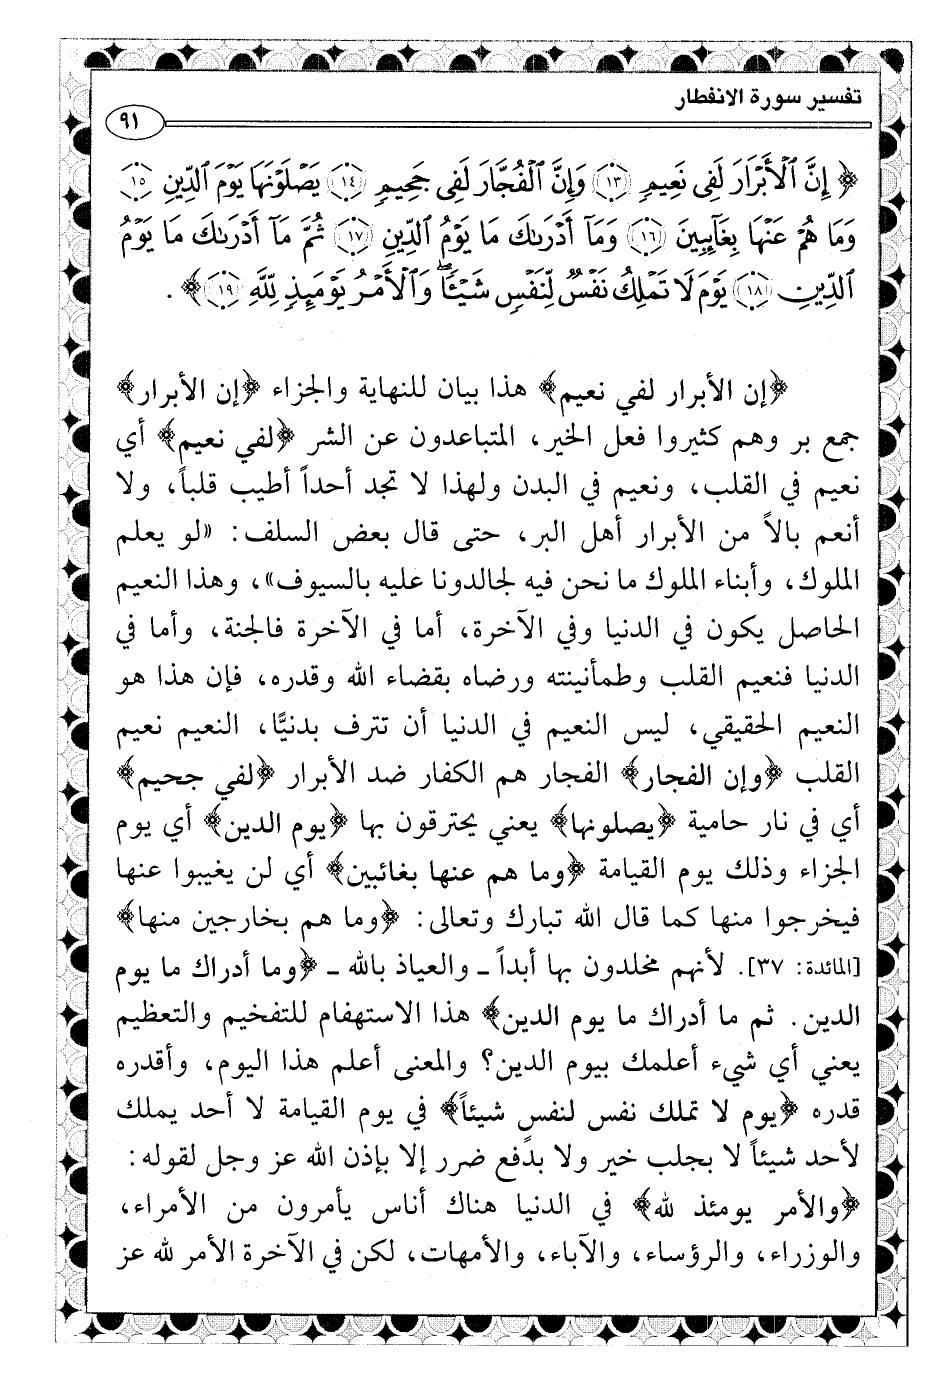 تفسير سورة الانفطار
٩١
﴿ إِنَّ ٱلْأَبْرَارَ لَفِى نَعِيمٍ ﴿١٣﴾ وَإِنَّ ٱلْفُجَّارَ لَفِى جَحِيمٍ ﴿١٤﴾ يَصْلَوْنَهَا يَوْمَ ٱلدِّينِ ﴿١٥﴾
وَمَا هُمْ عَنْهَا بِغَآئِبِينَ ﴿١٦﴾ وَمَآ أَدْرَىٰكَ مَا يَوْمُ ٱلدِّينِ ﴿١٧﴾ ثُمَّ مَآ أَدْرَىٰكَ مَا يَوْمُ
ٱلدِّينِ ﴿١٨﴾ يَوْمَ لَا تَمْلِكُ نَفْسٌ لِّنَفْسٍ شَيْـًٔا ۖ وَٱلْأَمْرُ يَوْمَئِذٍ لِّلَّهِ ﴿١٩﴾ ﴾ .
﴿إن الأبرار لفي نعيم﴾ هذا بيان للنهاية والجزاء ﴿إن الأبرار﴾
جمع بر وهم كثيروا فعل الخير، المتباعدون عن الشر ﴿لفي نعيم﴾ أي
نعيم في القلب، ونعيم في البدن ولهذا لا تجد أحداً أطيب قلباً، ولا
أنعم بالاً من الأبرار أهل البر، حتى قال بعض السلف: «لو يعلم
الملوك، وأبناء الملوك ما نحن فيه لجالدونا عليه بالسيوف»، وهذا النعيم
الحاصل يكون في الدنيا وفي الآخرة، أما في الآخرة فالجنة، وأما في
الدنيا فنعيم القلب وطمأنينته ورضاه بقضاء الله وقدره، فإن هذا هو
النعيم الحقيقي، ليس النعيم في الدنيا أن تترف بدنيًّا، النعيم نعيم
القلب ﴿وإن الفجار﴾ الفجار هم الكفار ضد الأبرار ﴿لفي جحيم﴾
أي في نار حامية ﴿يصلونها﴾ يعني يحترقون بها ﴿يوم الدين﴾ أي يوم
الجزاء وذلك يوم القيامة ﴿وما هم عنها بغائبين﴾ أي لن يغيبوا عنها
فيخرجوا منها كما قال الله تبارك وتعالى: ﴿وما هم بخارجين منها﴾
[المائدة: ٣٧]. لأنهم مخلدون بها أبداً ـ والعياذ بالله ـ ﴿وما أدراك ما يوم
الدين. ثم ما أدراك ما يوم الدين﴾ هذا الاستفهام للتفخيم والتعظيم
يعني أي شيء أعلمك بيوم الدين؟ والمعنى أعلم هذا اليوم، وأقدره
قدره ﴿يوم لا تملك نفس لنفسٍ شيئاً﴾ في يوم القيامة لا أحد يملك
لأحد شيئاً لا بجلب خير ولا بدفع ضرر إلا بإذن الله عز وجل لقوله:
﴿والأمر يومئذ لله﴾ في الدنيا هناك أناس يأمرون من الأمراء،
والوزراء، والرؤساء، والآباء، والأمهات، لكن في الآخرة الأمر لله عز